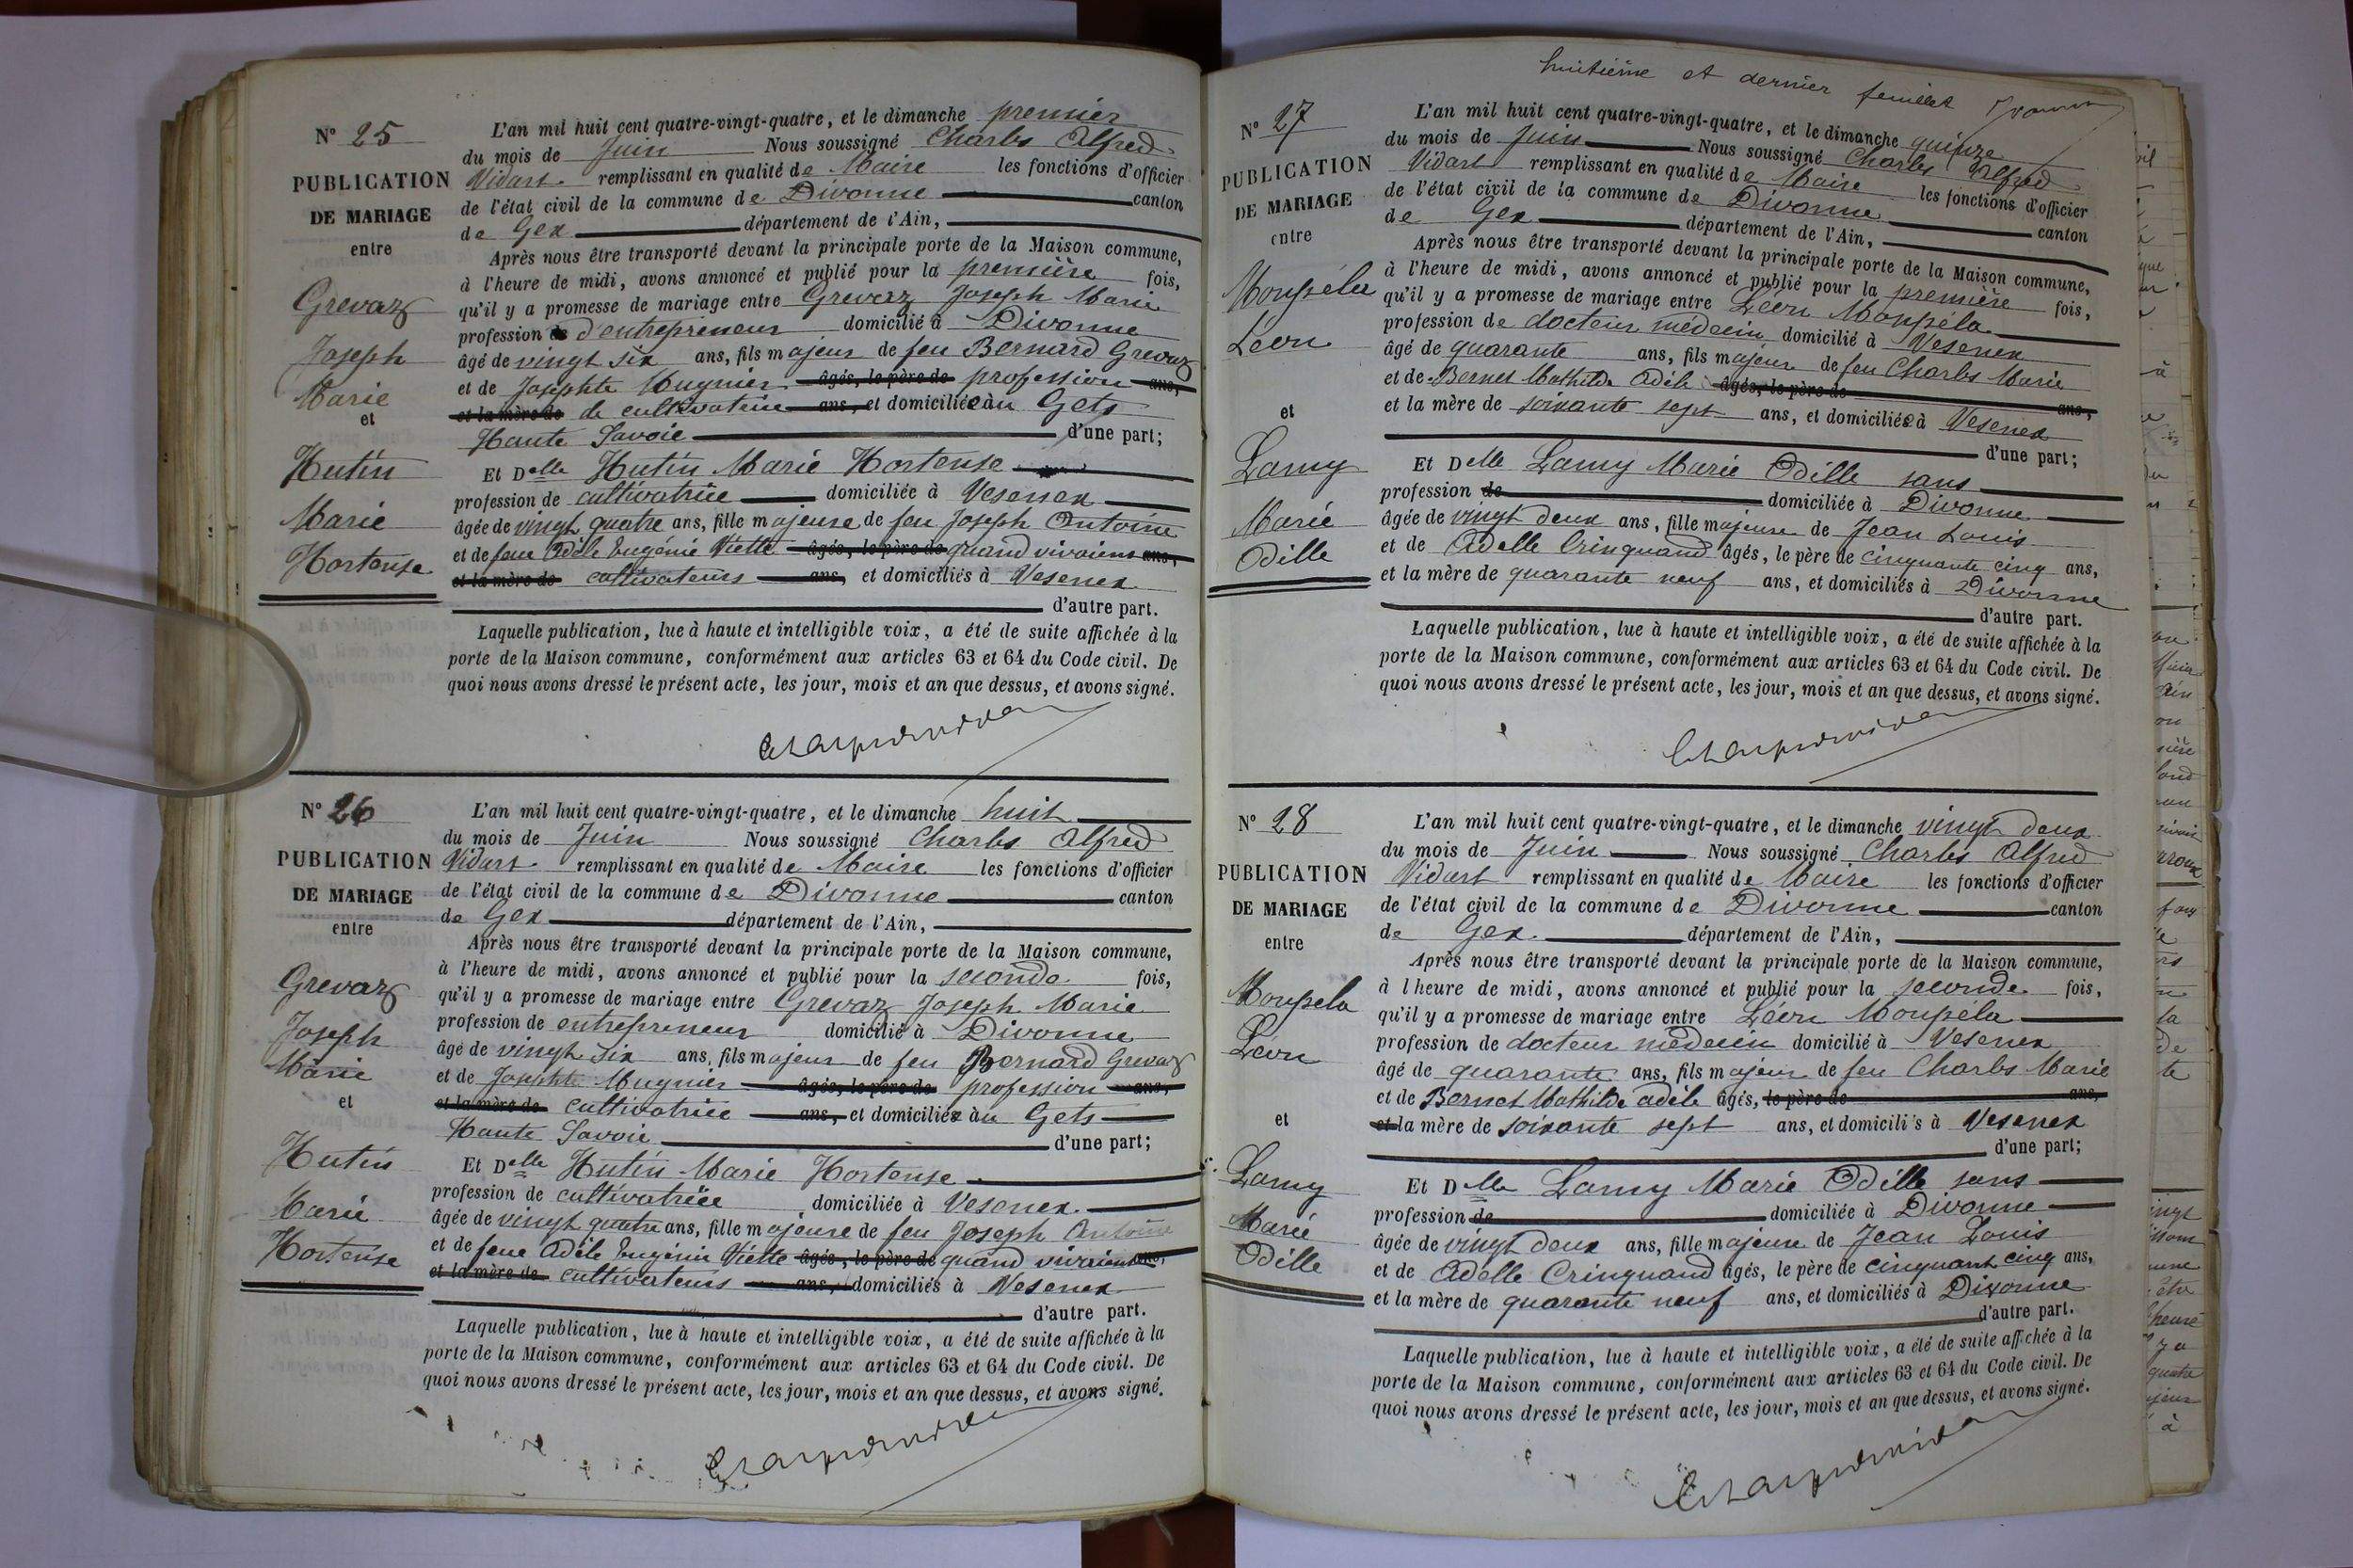 N° 25
PUBLICATION
DE MARIAGE
entre
Grevaz
Joseph
Marie
et
Hutin
Marie
Hortense
L'an mil huit cent quatre-vingt-quatre, et le dimanche premier
du mois de Juin Nous soussigné Charles Alfred
Vidart remplissant en qualité de Maire les fonctions d'officier
de l'état civil de la commune de Divonne canton
de Gex département de l'Ain,
Après nous être transporté devant la principale porte de la Maison commune,
à l'heure de midi, avons annoncé et publié pour la première fois,
qu'il y a promesse de mariage entre Grevaz Joseph Marie
profession d'entrepreneur domicilié à Divonne
âgé de vingt six ans, fils majeur de feu Bernard Grevaz
et de Josephte Mugnier âgés, le père de profession ans,
et la mère de de cultivatrice ans, et domiciliée àu Gets
Haute Savoie d'une part;
Et Delle Hutin Marie Hortense
profession de cultivatrice domiciliée à Vesenex
âgée de vingt quatre ans, fille majeure de feu Joseph Antoine
et de feue Adèle Eugénie Viette âgés, le père de quand vivaient ans,
et la mère de cultivateurs ans, et domiciliés à Vesenex
d'autre part.
Laquelle publication, lue à haute et intelligible voix, a été de suite affichée à la
porte de la Maison commune, conformément aux articles 63 et 64 du Code civil. De
quoi nous avons dressé le présent acte, les jour, mois et an que dessus, et avons signé.
N° 26
PUBLICATION
DE MARIAGE
entre
Grevaz
Joseph
Marie
et
Hutin
Marie
Hortense
L'an mil huit cent quatre-vingt-quatre, et le dimanche huit
du mois de Juin Nous soussigné Charles Alfred
Vidart remplissant en qualité de Maire les fonctions d'officier
de l'état civil de la commune de Divonne canton
de Gex département de l'Ain,
Après nous être transporté devant la principale porte de la Maison commune,
à l'heure de midi, avons annoncé et publié pour la seconde fois,
qu'il y a promesse de mariage entre Grevaz Joseph Marie
profession de entrepreneur domicilié à Divonne
âgé de vingt six ans, fils majeur de feu Bernard Grevaz
et de Josephte Mugnier âgés, le père de profession ans,
et la mère de cultivatrice ans, et domiciliée àu Gets
Haute Savoie d'une part;
Et Delle Hutin Marie Hortense
profession de cultivatrice domiciliée à Vesenex
âgée de vingt quatre ans, fille majeure de feu Joseph Antoine
et de feue Adèle Eugénie Viette âgés, le père de quand vivaient ans,
et la mère de cultivateurs ans, domiciliés à Vesenex
d'autre part.
Laquelle publication, lue à haute et intelligible voix, a été de suite affichée à la
porte de la Maison commune, conformément aux articles 63 et 64 du Code civil. De
quoi nous avons dressé le présent acte, les jour, mois et an que dessus, et avons signé.
huitième et dernier feuillet
N° 27
PUBLICATION
DE MARIAGE
entre
Moupéla
Léon
et
Lamy
Marie
Odille
L'an mil huit cent quatre-vingt-quatre, et le dimanche quinze
du mois de Juin Nous soussigné Charles Alfred
Vidart remplissant en qualité de Maire les fonctions d'officier
de l'état civil de la commune de Divonne canton
de Gex département de l'Ain,
Après nous être transporté devant la principale porte de la Maison commune,
à l'heure de midi, avons annoncé et publié pour la première fois,
qu'il y a promesse de mariage entre Léon Moupéla
profession de docteur médecin domicilié à Vesenex
âgé de quarante ans, fils majeur de feu Charles Marie
et de Bernet Mathilde Adèle âgés, le père de ans,
et la mère de soixante sept ans, et domiciliée à Vesenex
d'une part;
Et Delle Lamy Marie Odille sans
profession de domiciliée à Divonne
âgée de vingt deux ans, fille majeure de Jean Louis
et de Adelle Crinquand âgés, le père de cinquante cinq ans,
et la mère de quarante neuf ans, et domiciliés à Divonne
d'autre part.
Laquelle publication, lue à haute et intelligible voix, a été de suite affichée à la
porte de la Maison commune, conformément aux articles 63 et 64 du Code civil. De
quoi nous avons dressé le présent acte, les jour, mois et an que dessus, et avons signé.
N° 28
PUBLICATION
DE MARIAGE
entre
Moupéla
Léon
et
Lamy
Marie
Odille
L'an mil huit cent quatre-vingt-quatre, et le dimanche vingt deux
du mois de Juin Nous soussigné Charles Alfred
Vidart remplissant en qualité de Maire les fonctions d'officier
de l'état civil de la commune de Divonne canton
de Gex département de l'Ain,
Après nous être transporté devant la principale porte de la Maison commune,
à l'heure de midi, avons annoncé et publié pour la seconde fois,
qu'il y a promesse de mariage entre Léon Moupéla
profession de docteur médecin domicilié à Vesenex
âgé de quarante ans, fils majeur de feu Charles Marie
et de Bernet Mathilde adèle âgés, le père de ans,
et la mère de soixante sept ans, et domicili's à Vesenex
d'une part;
Et Delle Lamy Marie Odille sans
profession de domiciliée à Divonne
âgée de vingt deux ans, fille majeure de Jean Louis
et de Adelle Crinquand âgés, le père de cinquant cinq ans,
et la mère de quarante neuf ans, et domiciliés à Divonne
d'autre part.
Laquelle publication, lue à haute et intelligible voix, a été de suite affichée à la
porte de la Maison commune, conformément aux articles 63 et 64 du Code civil. De
quoi nous avons dressé le présent acte, les jour, mois et an que dessus, et avons signé.